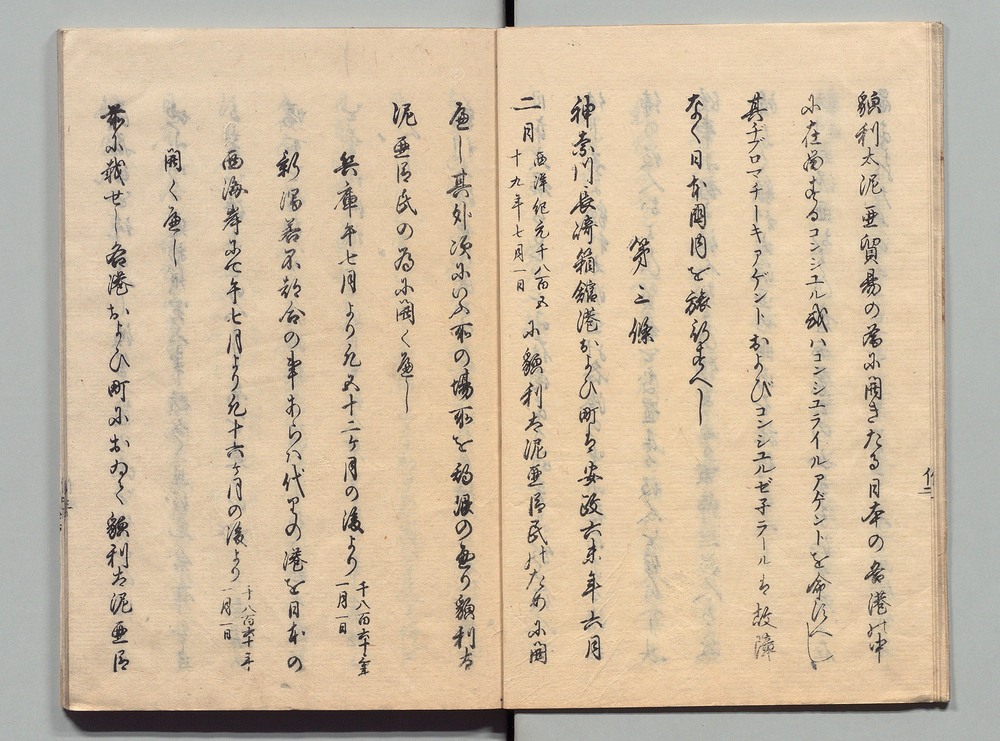 貌利太泥亜貿易の為に開きたる日本の各港の中
に在留するコンシユル或ハコンシユライルアゲントを命すへし
其ヂプロマチーキアゲントおよびコンシユルゼ子ラールは故障
なく日本国内を旅行すへし
第三條
神奈川長崎箱館港および町は安政六未年六月
二月西洋紀元千八百五十九年七月一日に貌利太泥亜臣民のために開
へし其外次にいふ所の場所を約源の通り貌利太
泥亜臣民の為に開くへし
兵庫午七月より凡五十二ヶ月の後より千八百六十三年一月一日
新潟若不都合の事あらハ代りの港を日本の
西海岸にて午七月より凡十六ヶ月の後より千八百六十年一月一日
開くへし
前に載せし各港および町におゐて貌利太泥亜臣